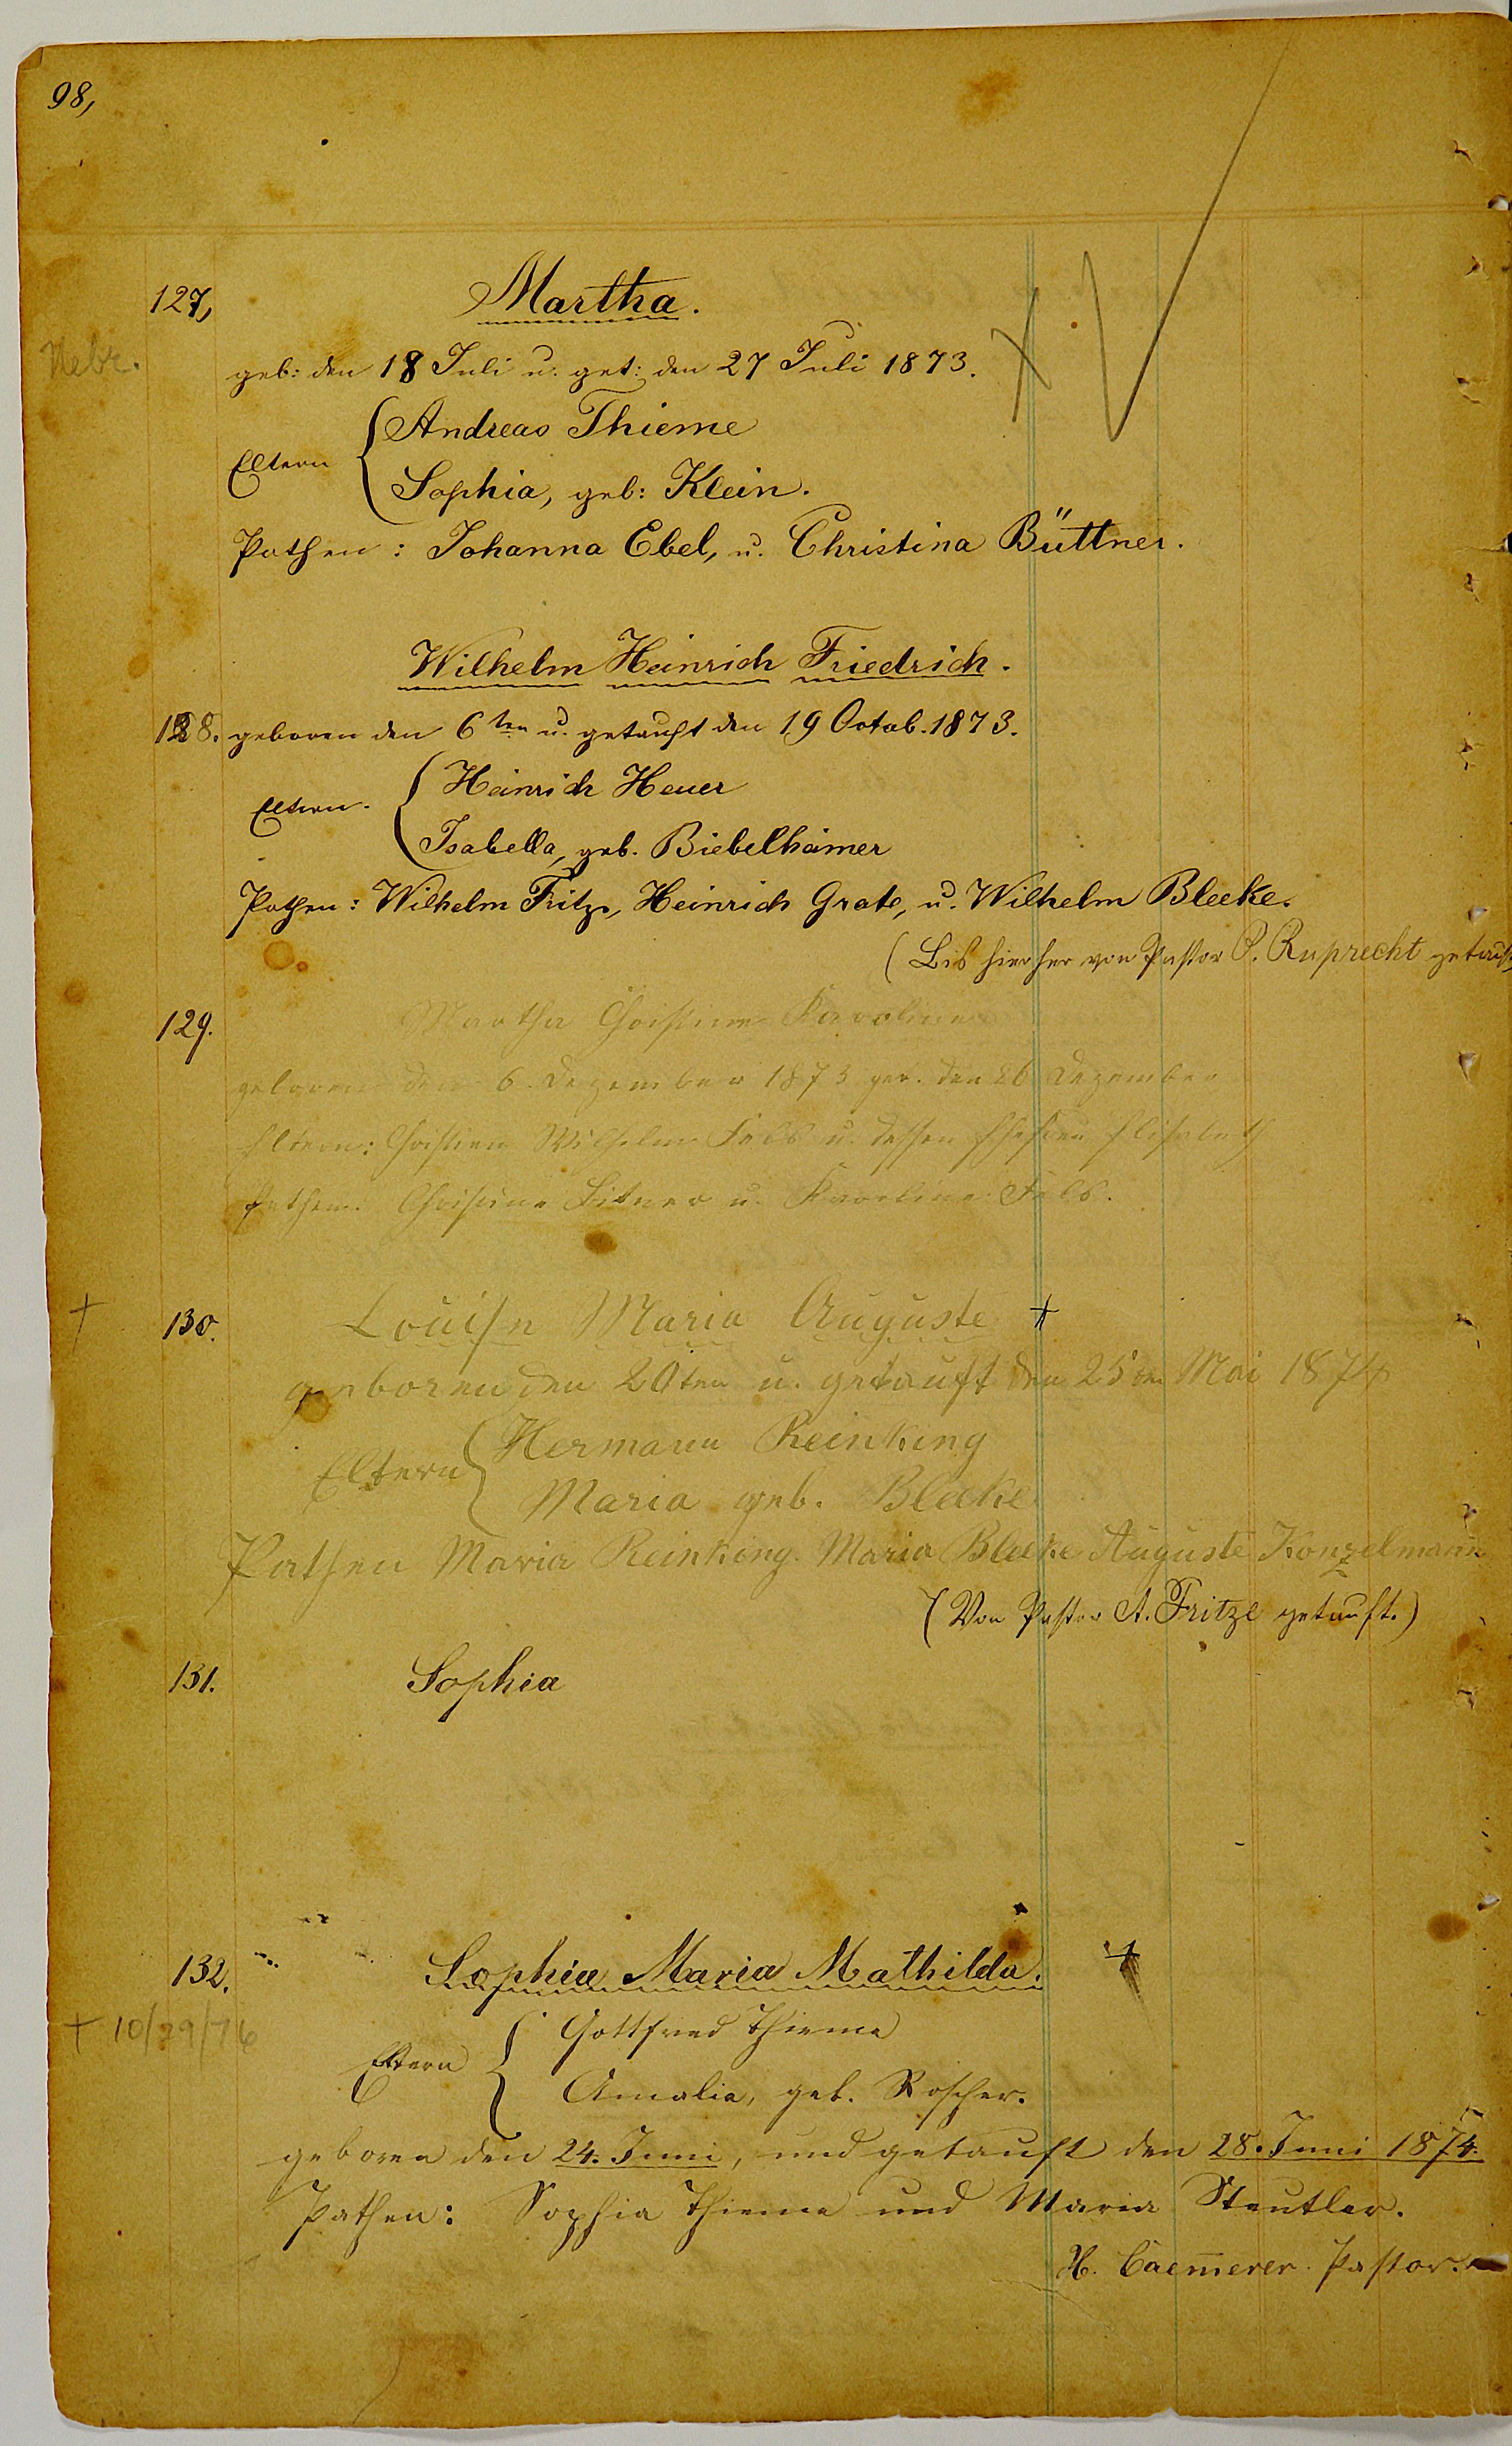 98,
127,
Martha.
Nebr.
geb: den 18 Juli u. get: den 27 Juli 1873.
Andreas Thieme
Eltern
Sophia, geb: Klein.
Pathen: Johanna Ebel, u. Christina Büttner.
Wilhelm Heinrich Friedrich.
128. geboren den 6ten u. getauft den 19 Octob. 1873.
Heinrich Heuer
Eltern.
Isabella, geb. Biebelhämer
Pathen: Wilhelm Fritze, Heinrich Grote, u. Wilhelm Bleeke.
(Bis hierher von Pastor P. Ruprecht getauft
129.
Martha Christine Karoline
geboren den 6. Dezember 1873 get. den 26 Dezember
Eltern: Christian Wilhelm Fels u. dessen Ehefrau Elisabeth
Pathen: Christine Bitner u. Karoline Fels.
130.
Louise Maria Auguste
geboren den 20ten u. getauft den 25ten Mai 1874
Hermann Reinking
Eltern
Maria geb. Bleeke
Pathen Maria Reinking. Maria Bleeke Auguste Konzelmann
(Von Pastor A. Fritze getauft.)
131.
Sophia
132.
Sophia Maria Mathilda.
+ 10/29/76
Gottfried Thieme
Eltern
Amalia, geb. Roscher.
geboren den 24. Juni, und getauft den 28. Juni 1874.
Pathen: Sophia Thieme und Maria Steutler.
H. Caem̅erer. Pastor.